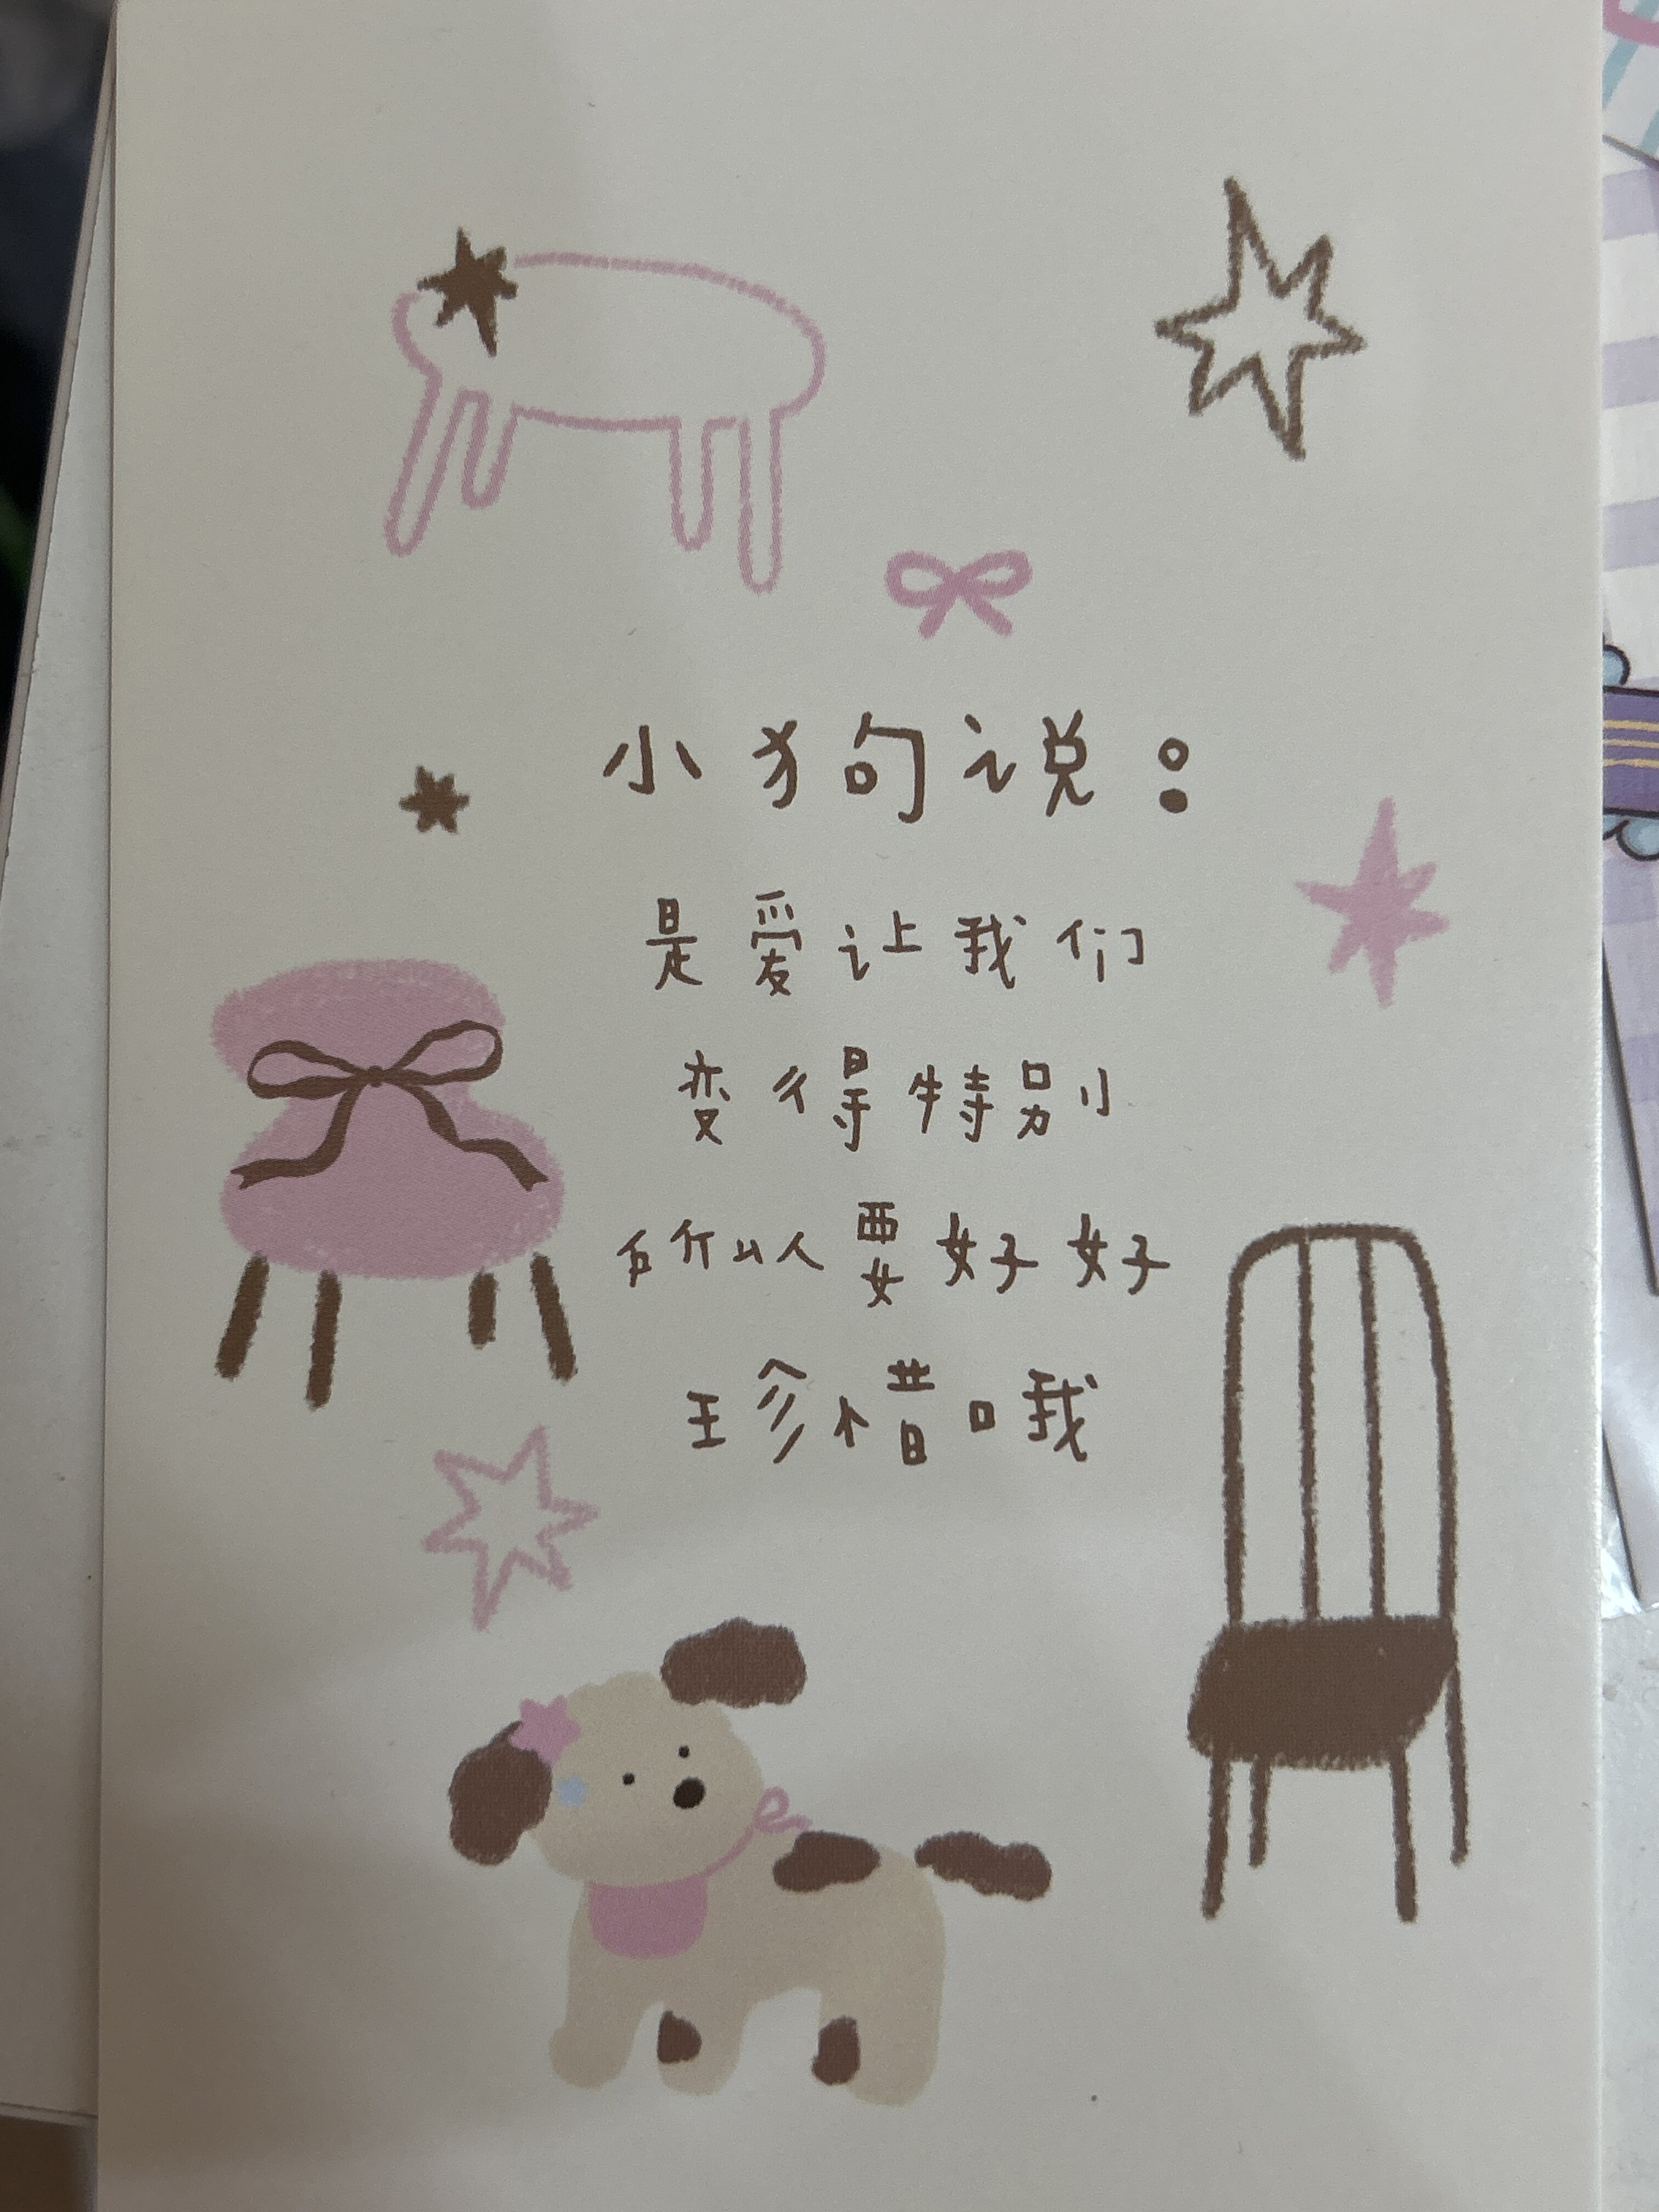 小狗说：
是爱让我们
变得特别
所以要好好
珍惜哦